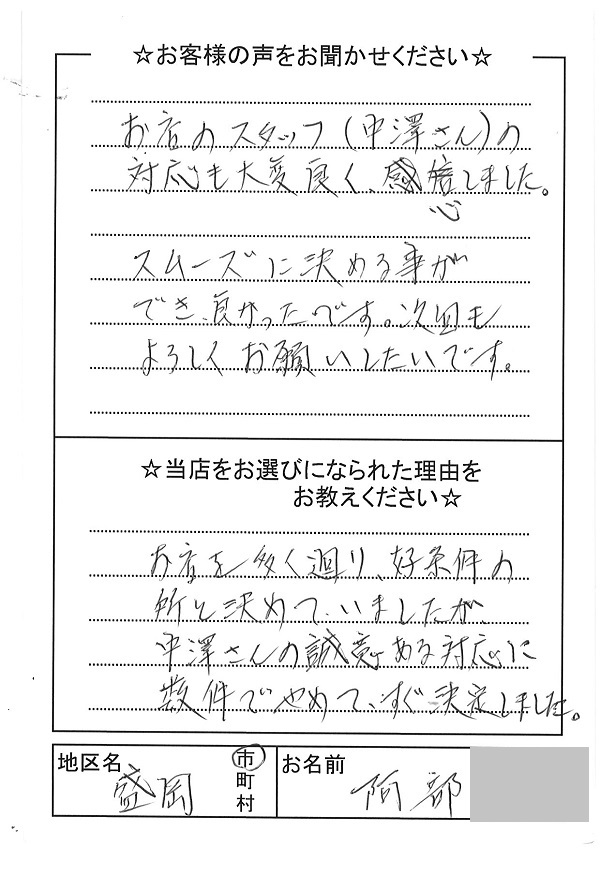 ☆お客様の声をお聞かせください☆
お店のスタッフ(中澤さん)の
対応も大変良く、感心しました。
スムーズに決める事が
でき、良かったです。次回も
よろしくお願いしたいです。
☆当店をお選びになられた理由を
お教えください☆
お店を多く廻り、好条件の
所と決めていましたが、
中澤さんの誠意ある対応に
数件でやめて、すぐ決定しました。
地区名 盛岡 市町村 お名前 阿部